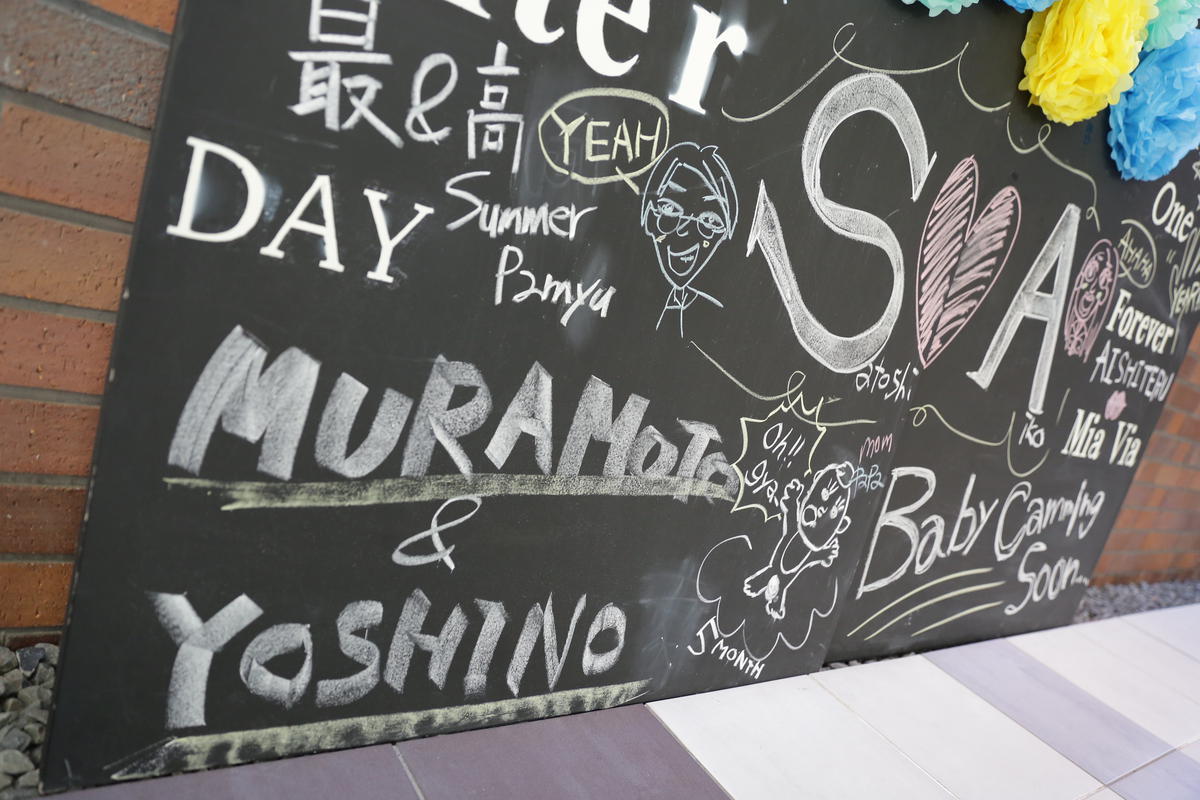 ter
最&高
DAY
YEAH
Summer
Pamyu
S A
atoshi
iko
One
Forever
AISHITERU
Mia Via
MURAMOTO
&
YOSHINO
Oh!!
mom
PaPa
Baby Camming
Soon...
5 MONTH